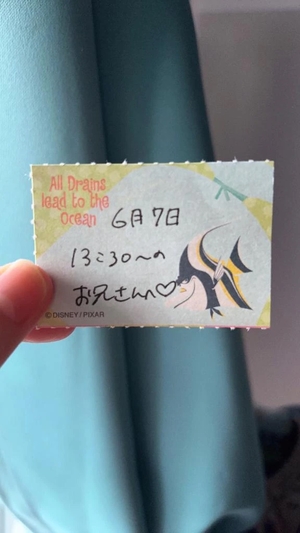 All Drains
lead to the
Ocean
6月7日
13:30〜の
お兄さんへ♡
© DISNEY / PIXAR